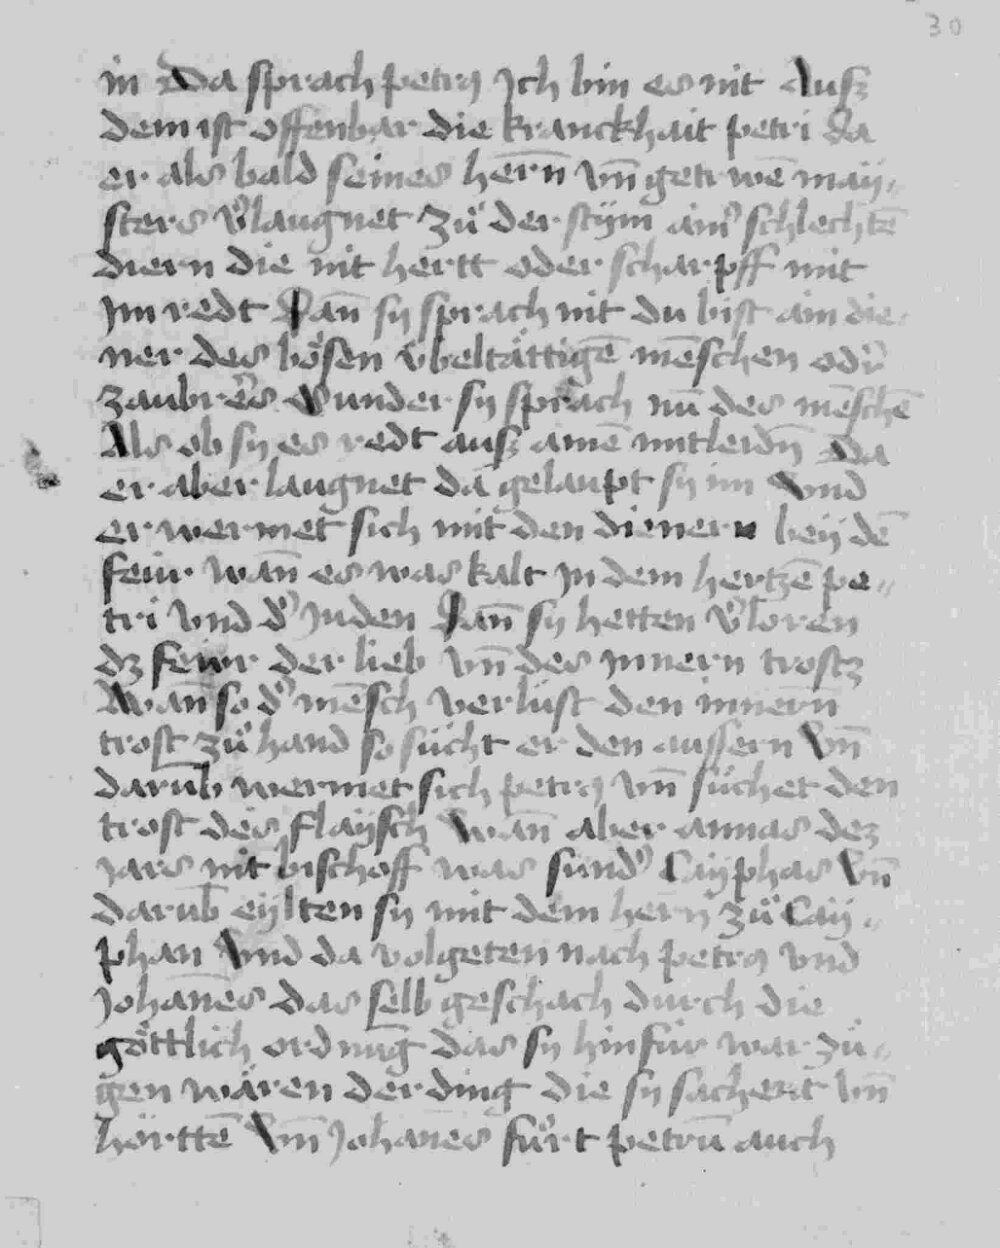 30
in Da sprach petrꝰ Ich bin es nit Ausz
dem ist offenbar die kranckhait petri da
er als bald seines her̄n vn̄ getrwē maÿ-
sters v̓laugnet Zů der stÿm aim̓ schlechtē
diern die nit hertt oder scharpff mit
Im redt Dan̄ sÿ sprach nit du bist ain die-
ner des bȯ̈sen v̈beltättigē mēschen od̓
zaubrers Sunder sÿ sprach nū des mēschē
Als ob sÿ es redt ausz ainē mitleidn̄ Da
er aber laugnet da gelaupt sÿ im Vnd
er wermet sich mit den dienern beÿ dē
feŵr wan̄ es was kalt In dem hertzē pe-
tri Vnd d̓ Juden Dan̄ sÿ hetten v̓loren
dz feẅr der lieb vn̄ des Innern trostz
Wan̄ so d̓ mēsch verlüst den innern̄
trost zů hand so sůcht er den aussern Vn̄
darūb wermet sich petrꝰ vn̄ sůchet den
trost des flaÿsch Wan̄ aber annas dez
Jars nit bischoff was sund̓ Caÿphas Vn̄
darūb eÿlten sÿ mit dem hern̄ zů Caÿ-
phan Vnd da volgeten nach petrꝰ vnd
Johan̄es das selb geschach durch die
göttlich ordnūg das sÿ hinfür war zů-
gen wären der ding die sÿ sachent vn̄
hörttē Vn̄ Johanes fůrt petrū auch